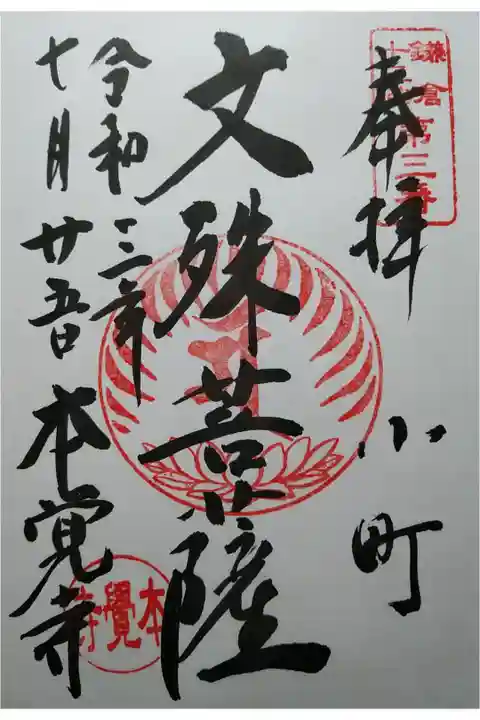 奉拝
小町
文殊菩薩
令和三年
十月廿五日
本覚寺
鎌倉
第三番
本覺寺